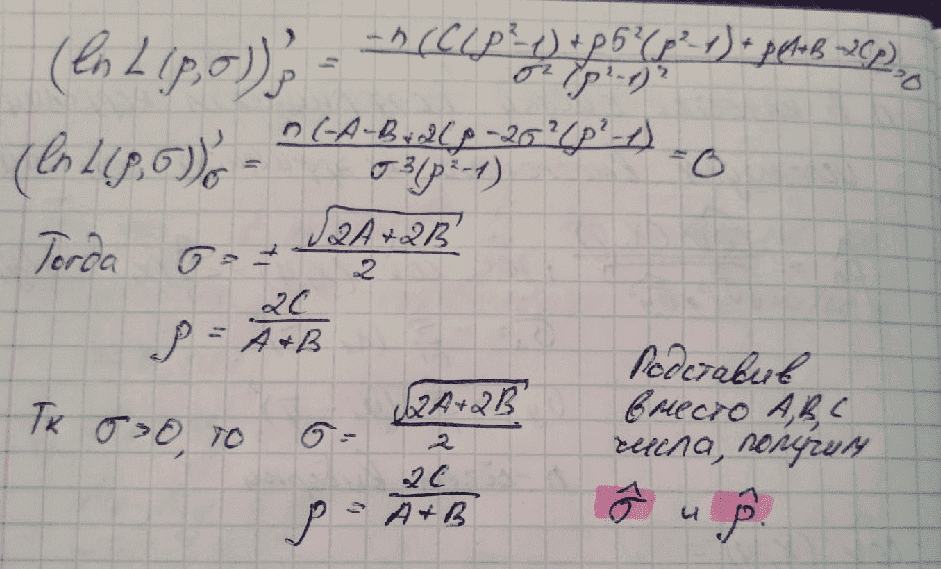 (ln L (ρ,σ))'ρ = -n (C(ρ²-1) + ρσ²(ρ²-1) + ρ(A+B-2Cρ) / σ²(ρ²-1)² = 0
(ln L(ρ,σ))'σ = n(-A-B+2Cρ-2σ²(ρ²-1) / σ³(ρ²-1) = 0
Тогда σ = ± √(2A+2B) / 2
ρ = 2C / A+B
Тк σ>0, то σ = √(2A+2B) / 2
ρ = 2C / A+B
Подставив
вместо A,B,C
числа, получим
σ̂ и ρ̂.